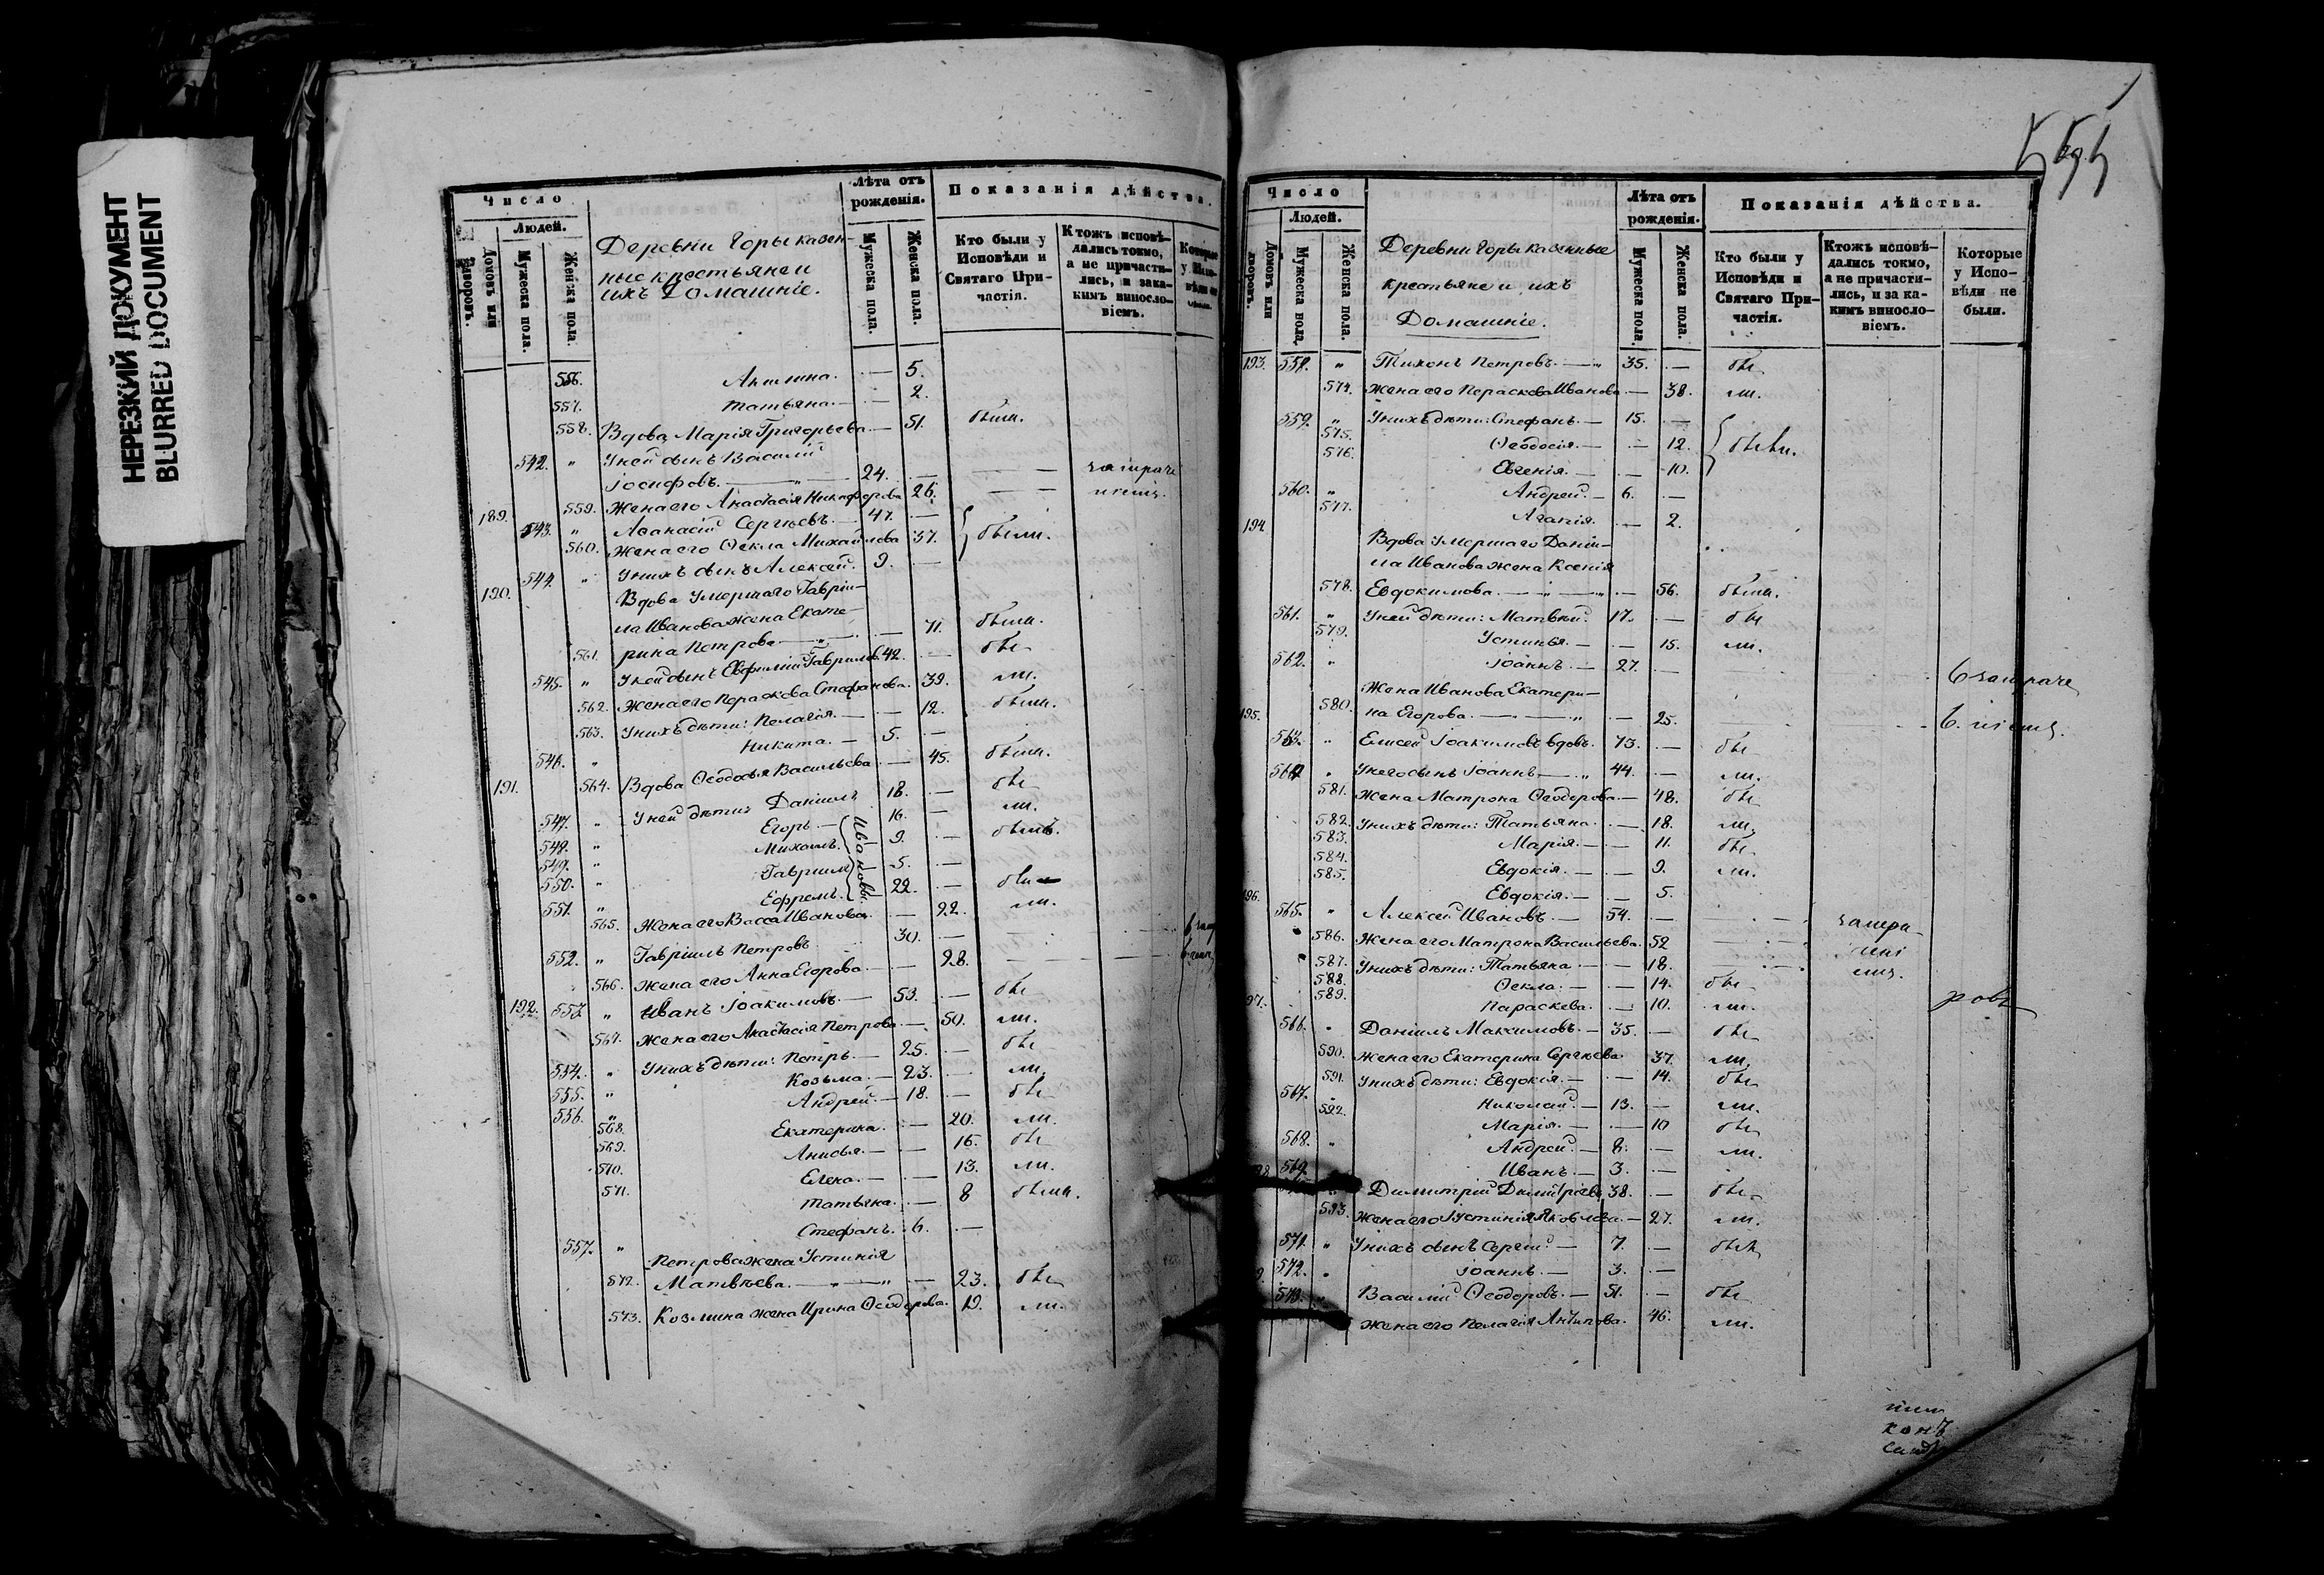 НЕРЕЗКИЙ ДОКУМЕНТ
BLURRED DOCUMENT
Число
Людей.
Домовъ или дворовъ.
Мужеска пола.
Женска пола.
Деревни Горы казен-
ные крестьяне и
ихъ Домашніе.
Лѣта отъ рожденія.
Мужеска пола.
Женска пола.
Показанія дѣйства.
Кто были у Исповѣди и Святаго Причастія.
Ктожъ исповѣдались токмо, а не причастились, и закакимъ винословіемъ.
Которые
556. Акилина. — 5.
557. Татьяна. — 2.
558. Вдова Марія Григорьева — 51. была.
542. " У ней сынъ Василій
Іосифовъ. — " — 24. —
559. Жена его Анастасія Никифорова 26.
189. 543. " Аѳанасій Сергѣевъ. — 47. —
560. Жена его Ѳекла Михайлова 37. были.
544. " У нихъ сынъ Алексѣй. 9. —
190. Вдова Умершаго Гаврі-
ла Иванова жена Екате-
561. рина Петрова — " — 71. была.
545. " У ней сынъ Евфимій Гавриловъ. 42. — бы
562. Жена его Параскева Стефанова. 39. ли.
563. У нихъ дѣти: Пелагія. — 12. была.
546. " Никита. — 5. —
191. 564. Вдова Ѳеодосья Васильева — 45. была.
547. " У ней дѣти: Даніилъ 18. — бы
548. " Егоръ. — 16. — ли.
549. " Михаилъ. 9. — былъ.
550. " Гавріилъ 5. —
551. " Ефремъ. 22. — бы
Ивановы
565. Жена его Васса Иванова. — 22. ли.
552. " Гавріилъ Петровъ 30. —
566. Жена его Анна Егорова. — 28.
192. 553. " Иванъ Іоакимовъ. — 53. — бы
567. Жена его Анастасія Петрова — 50. ли.
554. " У нихъ дѣти: Петръ. — 25. — бы
555. " Козьма. — 23. — ли.
556. " Андрей. — 18. — бы
568. Екатерина. — 20. ли.
569. Анисья. — 16. бы
570. Елена. — 13. ли.
571. Татьяна. — 8 была.
557. " Стефанъ. 6. —
Петрова жена Устинія
572. Матвѣева. — " — " — 23. бы
573. Козмина жена Ирина Ѳеодорова. 19. ли.
Число
Людей.
Домовъ или дворовъ.
Мужеска пола.
Женска пола.
Деревни Горы казенные
крестьяне и ихъ
Домашніе.
Лѣта отъ рожденія.
Мужеска пола.
Женска пола.
Показанія дѣйства.
Кто были у Исповѣди и Святаго Причастія.
Ктожъ исповѣдались токмо, а не причастились, и за какимъ винословіемъ.
Которые у Исповѣди не были.
193. 558. " Тихонъ Петровъ. — " 35. — бы
574. Жена его Параскева Иванова — 38. ли.
559. " У нихъ дѣти: Стефанъ. — 15. —
575. Ѳеодосія. — 12.
576. Евгенія. — 10.
560. " Андрей. — 6. —
577. Агапія. — 2.
194. Вдова Умершаго Даніи-
ла Иванова жена Ксенія
578. Евдокимова. — " — " — 56. была.
561. " У ней дѣти: Матвѣй. 17. — бы
579. Устинья. — 15. ли.
562. " Іоаннъ. — 27. —
Жена Иванова Екатери-
580. на Егорова. — " — 25.
195. 563. " Елисей Іоакимовъ вдовъ. 73. — бы
564. " У него сынъ Іоаннъ — " 44. — ли.
581. Жена Матрона Ѳеодорова. — 48. бы
582. У нихъ дѣти: Татьяна. — 18. ли.
583. Марія. — 11. бы
584. Евдокія. — 9. ли.
585. Евдокія. — 5.
196. 565. " Алексѣй Ивановъ. — 54. —
586. Жена его Матрона Васильева. 52
587. У нихъ дѣти: Татьяна — 18.
588. Ѳекла. — 14. бы
589. Параскева. — 10. ли.
97. 566. " Даніилъ Максимовъ. — 35. — бы
590. Жена его Екатерина Сергѣева. 37. ли.
591. У нихъ дѣти: Евдокія. — 14. бы
567. " Николай. — 13. — ли.
592. Марія. — 10 бы
568. " Андрей. — 8. — ли.
569. Иванъ. — 3. —
Димитрій Димитріевъ 38. — бы
593. Жена его Іустинія Яковлева. — 27. ли.
571. " У нихъ сынъ Сергій. — 7. — былъ
572. " Іоаннъ. — 3. —
573. " Василій Ѳеодоровъ. — 51. — бы
Жена его Пелагія Антипова. 46. ли.